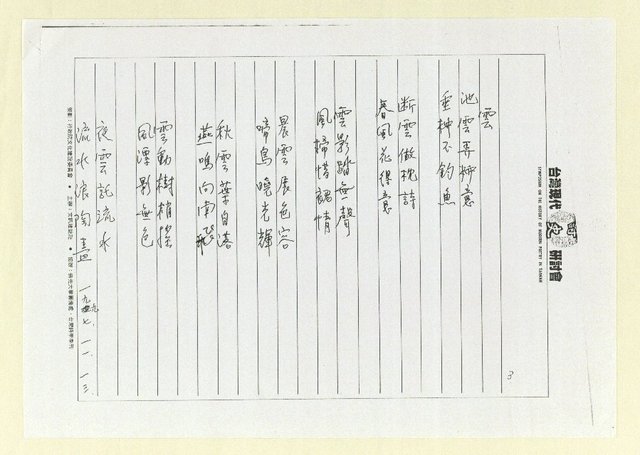 台灣現代詩史研討會
SYMPOSIUM ON THE HISTORY OF MODERN POETRY IN TAIWAN
3
雲
池雲弄柳意
垂柳不釣魚
断雲做枕詩
春風花得意
雲影踏無聲
風掃惜裙情
晨雲展色容
啼鳥曉光輝
秋雲葉自落
燕鳴向南飛
雲動樹梢搖
風漂影無色
夜雲託流水
流水浪淘盡
一九九七、一一、一三、